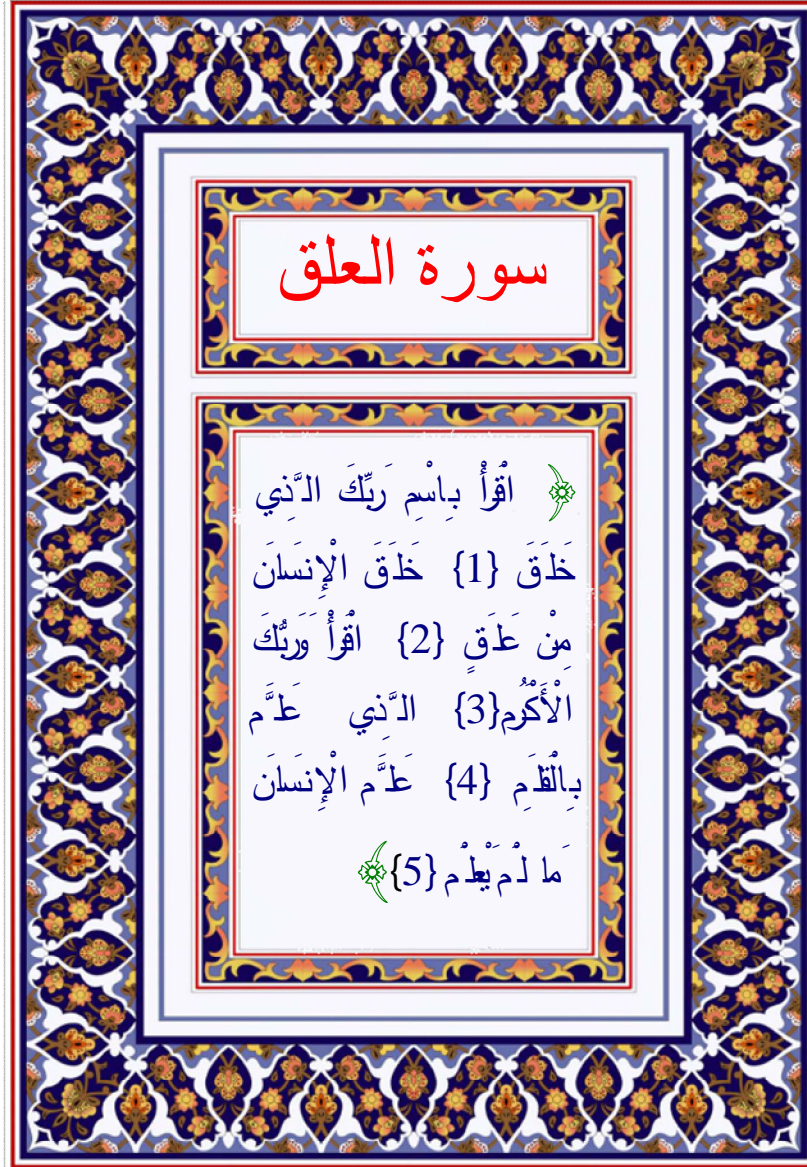 سورة العلق
﴿ اقْرَأْ بِاسْمِ رَبِّكَ الَّذِي
خَلَقَ {1} خَلَقَ الْإِنسَانَ
مِنْ عَلَقٍ {2} اقْرَأْ وَرَبُّكَ
الْأَكْرَمُ{3} الَّذِي عَلَّمَ
بِالْقَلَمِ {4} عَلَّمَ الْإِنسَانَ
مَا لَمْ يَعْلَمْ {5}﴾